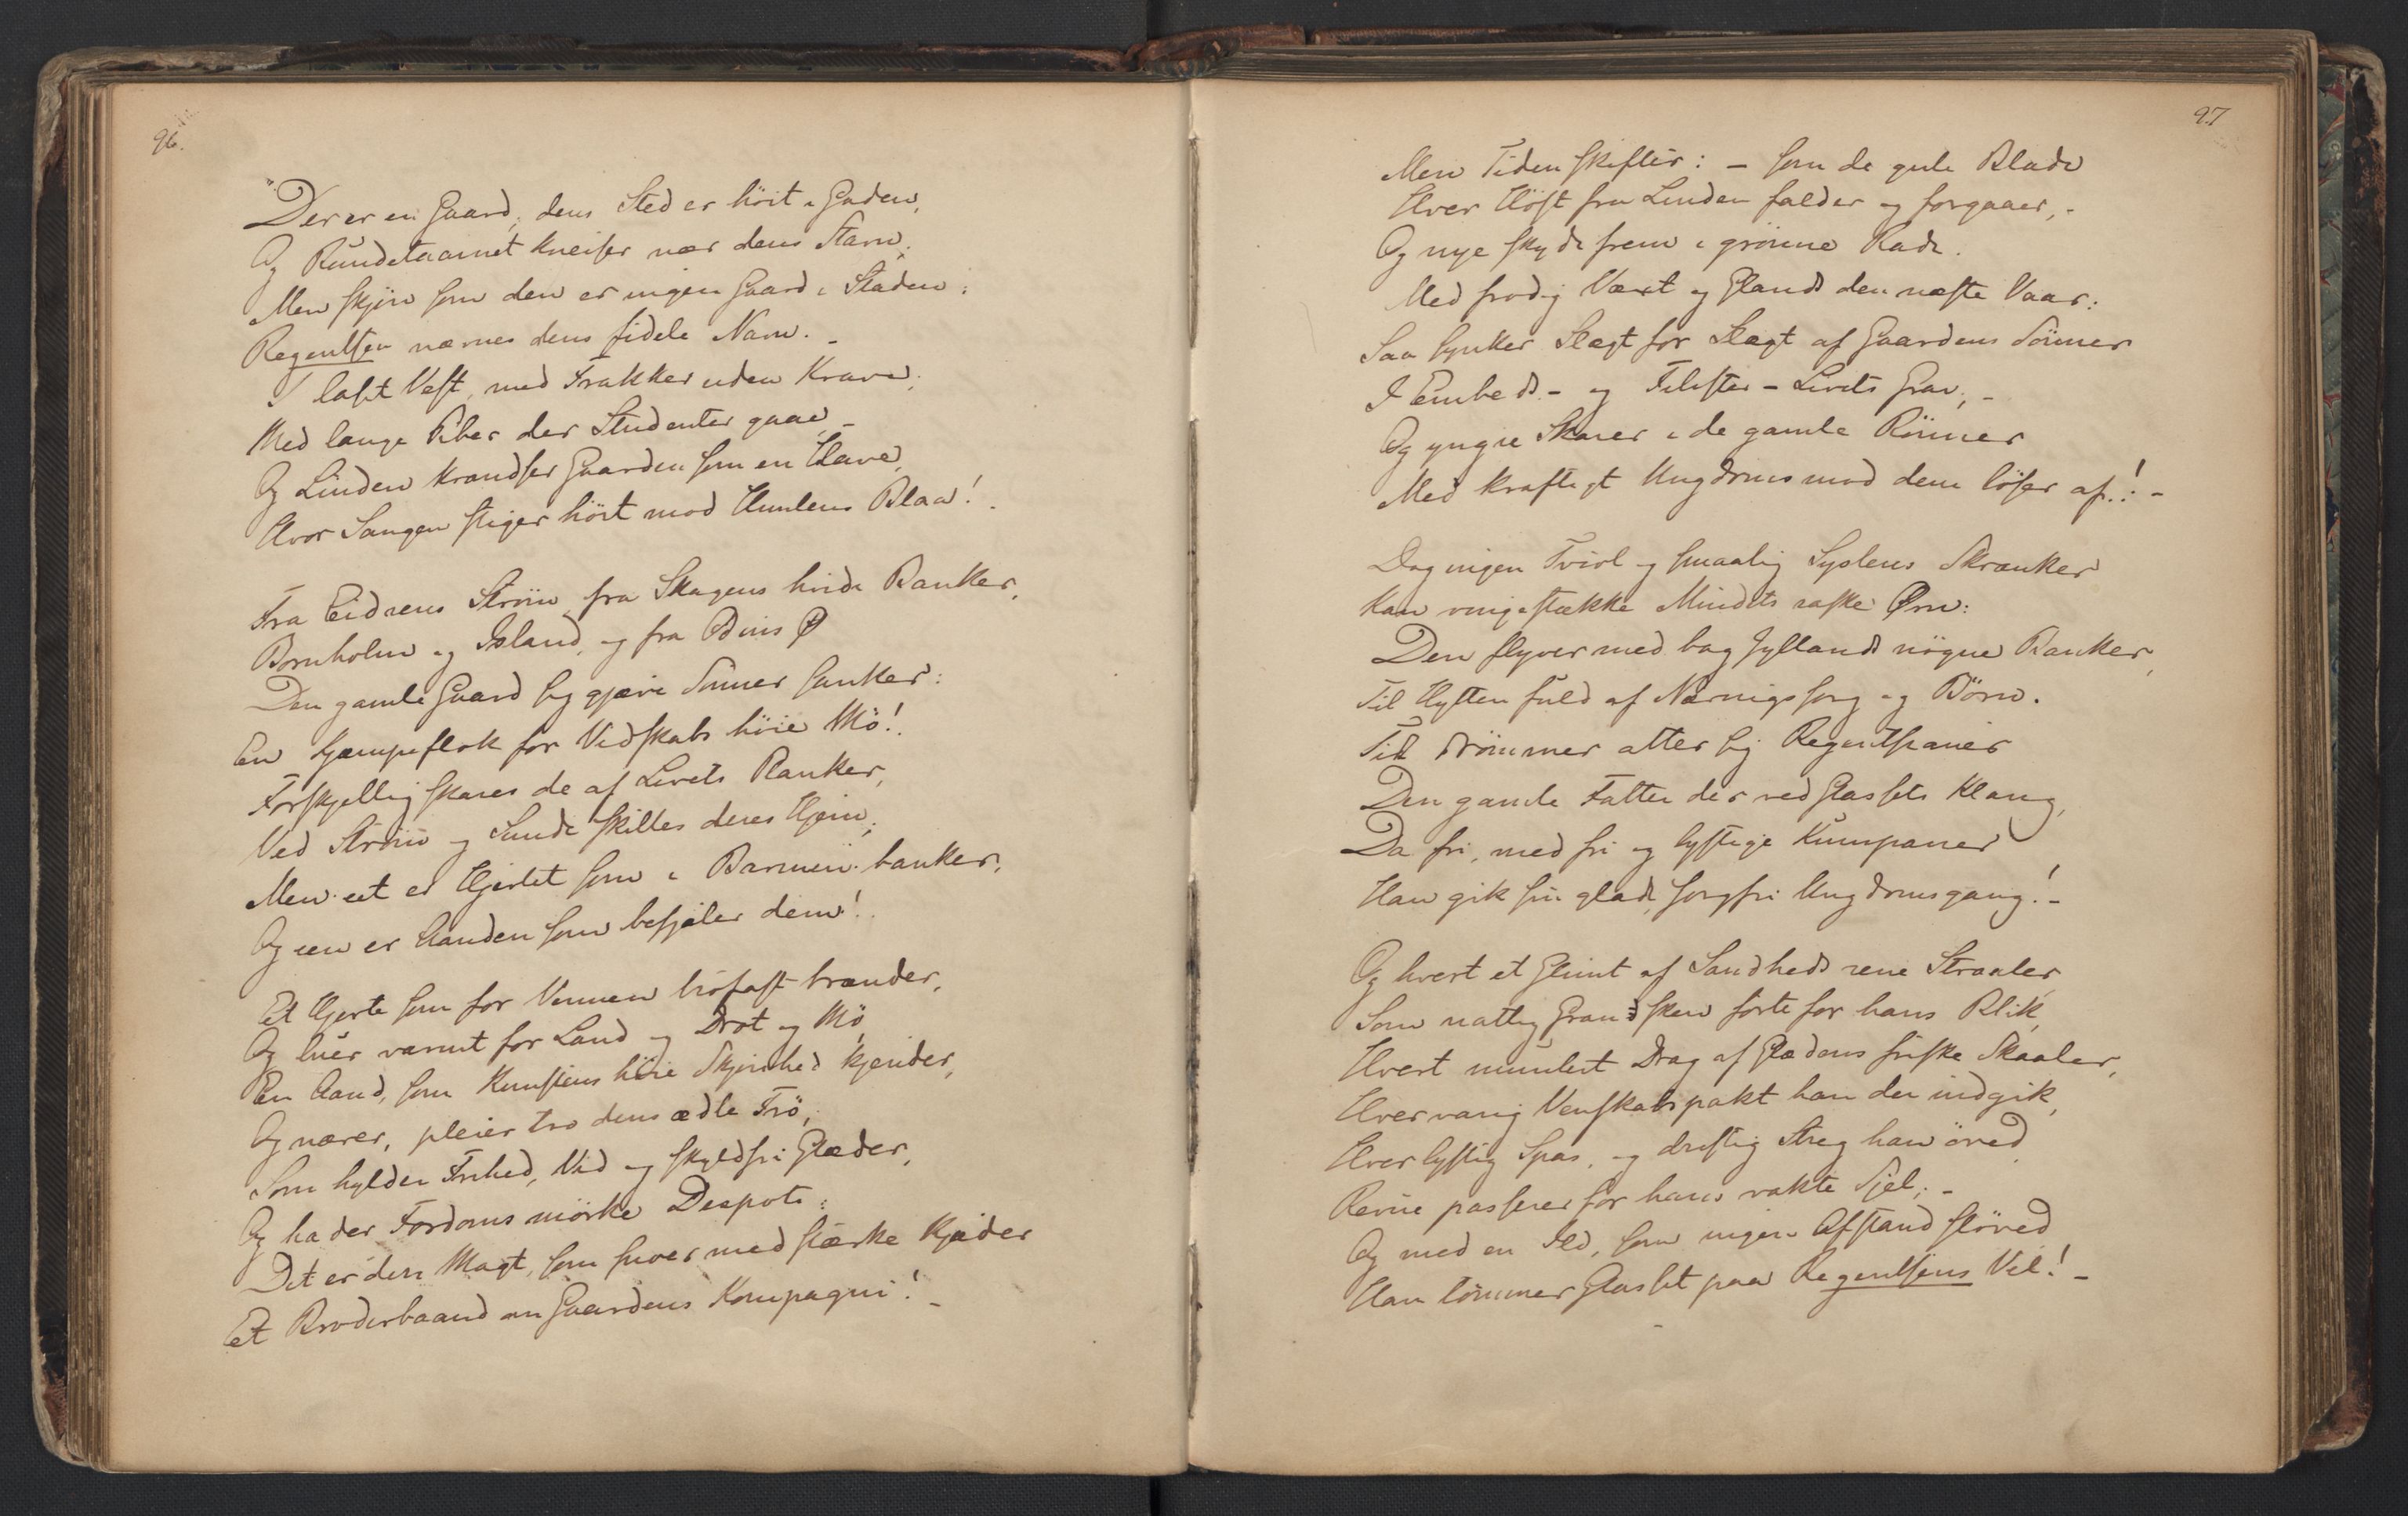 96.
Der er en Gaard, dens Sted er höit i Gaden,
Og Rundetaarnet kneiser nær dens Stavn,
Men skjön som den er ingen Gaard i Staden:
Regentsen nævnes dens fidele Navn. -
I laset Vest, med Frakker uden Krave,
Med lange Piber der Studenter gaae, -
Og Linden krandser Gaarden som en Have,
Hvor Sangen stiger höit mod Himlens Blaa! -
Fra Eidrens Ström, fra Skagens hvide Banker,
Bornholm og Island, og fra Odins Ø
Den gamle Gaard sig gjæve Sönner sanker:
En Kjæmpeflok for Vidskabs höie Mö!
Forskjellig skares de af Livets Ranker,
Ved Ström og Sunde skilles deres Hjem;
Men eet er Hjertet som i Barmen banker,
Og een er Aanden som besjæler dem!
Et Hjerte som for Vennen trofast brænder,
Og luer varmt for Land og Drot og Mö,
En Aand, som Kunstens höie Skjönhed kjender,
Og nærer, pleier tro dens ædle Frö,
Som hylder Frihed, Vid og skyldfri Glæder,
Og hader Fordoms mörke Despoti:
Det er den Magt, som snoer med stærke Kjæder
Et Broderbaand om Gaardens Kompagni! -
97
Men Tiden skifter: - som de gule Blade
Hver Höst fra Linden falder og forgaaer, -
Og nye skyde frem i grönne Rade
Med frodig Væxt og Glands den næste Vaar:
Saa synker Slægt for Slægt af Gaardens Sönner
I Embeds- og Filister-Livets Grav, -
Og yngre Skarer i de gamle Rönner
Med kraftigt Ungdomsmod dem löser af! -
Dog ingen Tvivl og smaalig Syslens Skranker
Kan vingestække Mindets raske Ørn:
Den flyver med bag Jyllands nögne Banker,
Til Hytten fuld af Næringssorg og Börn.
Tit drömmer atter sig Regentsianer
Den gamle Fatter der ved Glassets Klang,
Da fri, med fri og lystige Kumpaner
Han gik sin glade, sorgfri Ungdomsgang! -
Og hvert et Glimt af Sandheds rene Straaler,
Som nattlig Grandsken förte for hans Blik,
Hvert muntert Drag af Glædens friske Skaaler,
Hver varig Venskabspakt han der indgik,
Hver lystig Spas, og driftig Streg han öved
Revüe passerer for hans vakte Sjel; -
Og med en Ild, som ingen Afstand slöved
Han tömmer Glasset paa Regentsens Vel! -